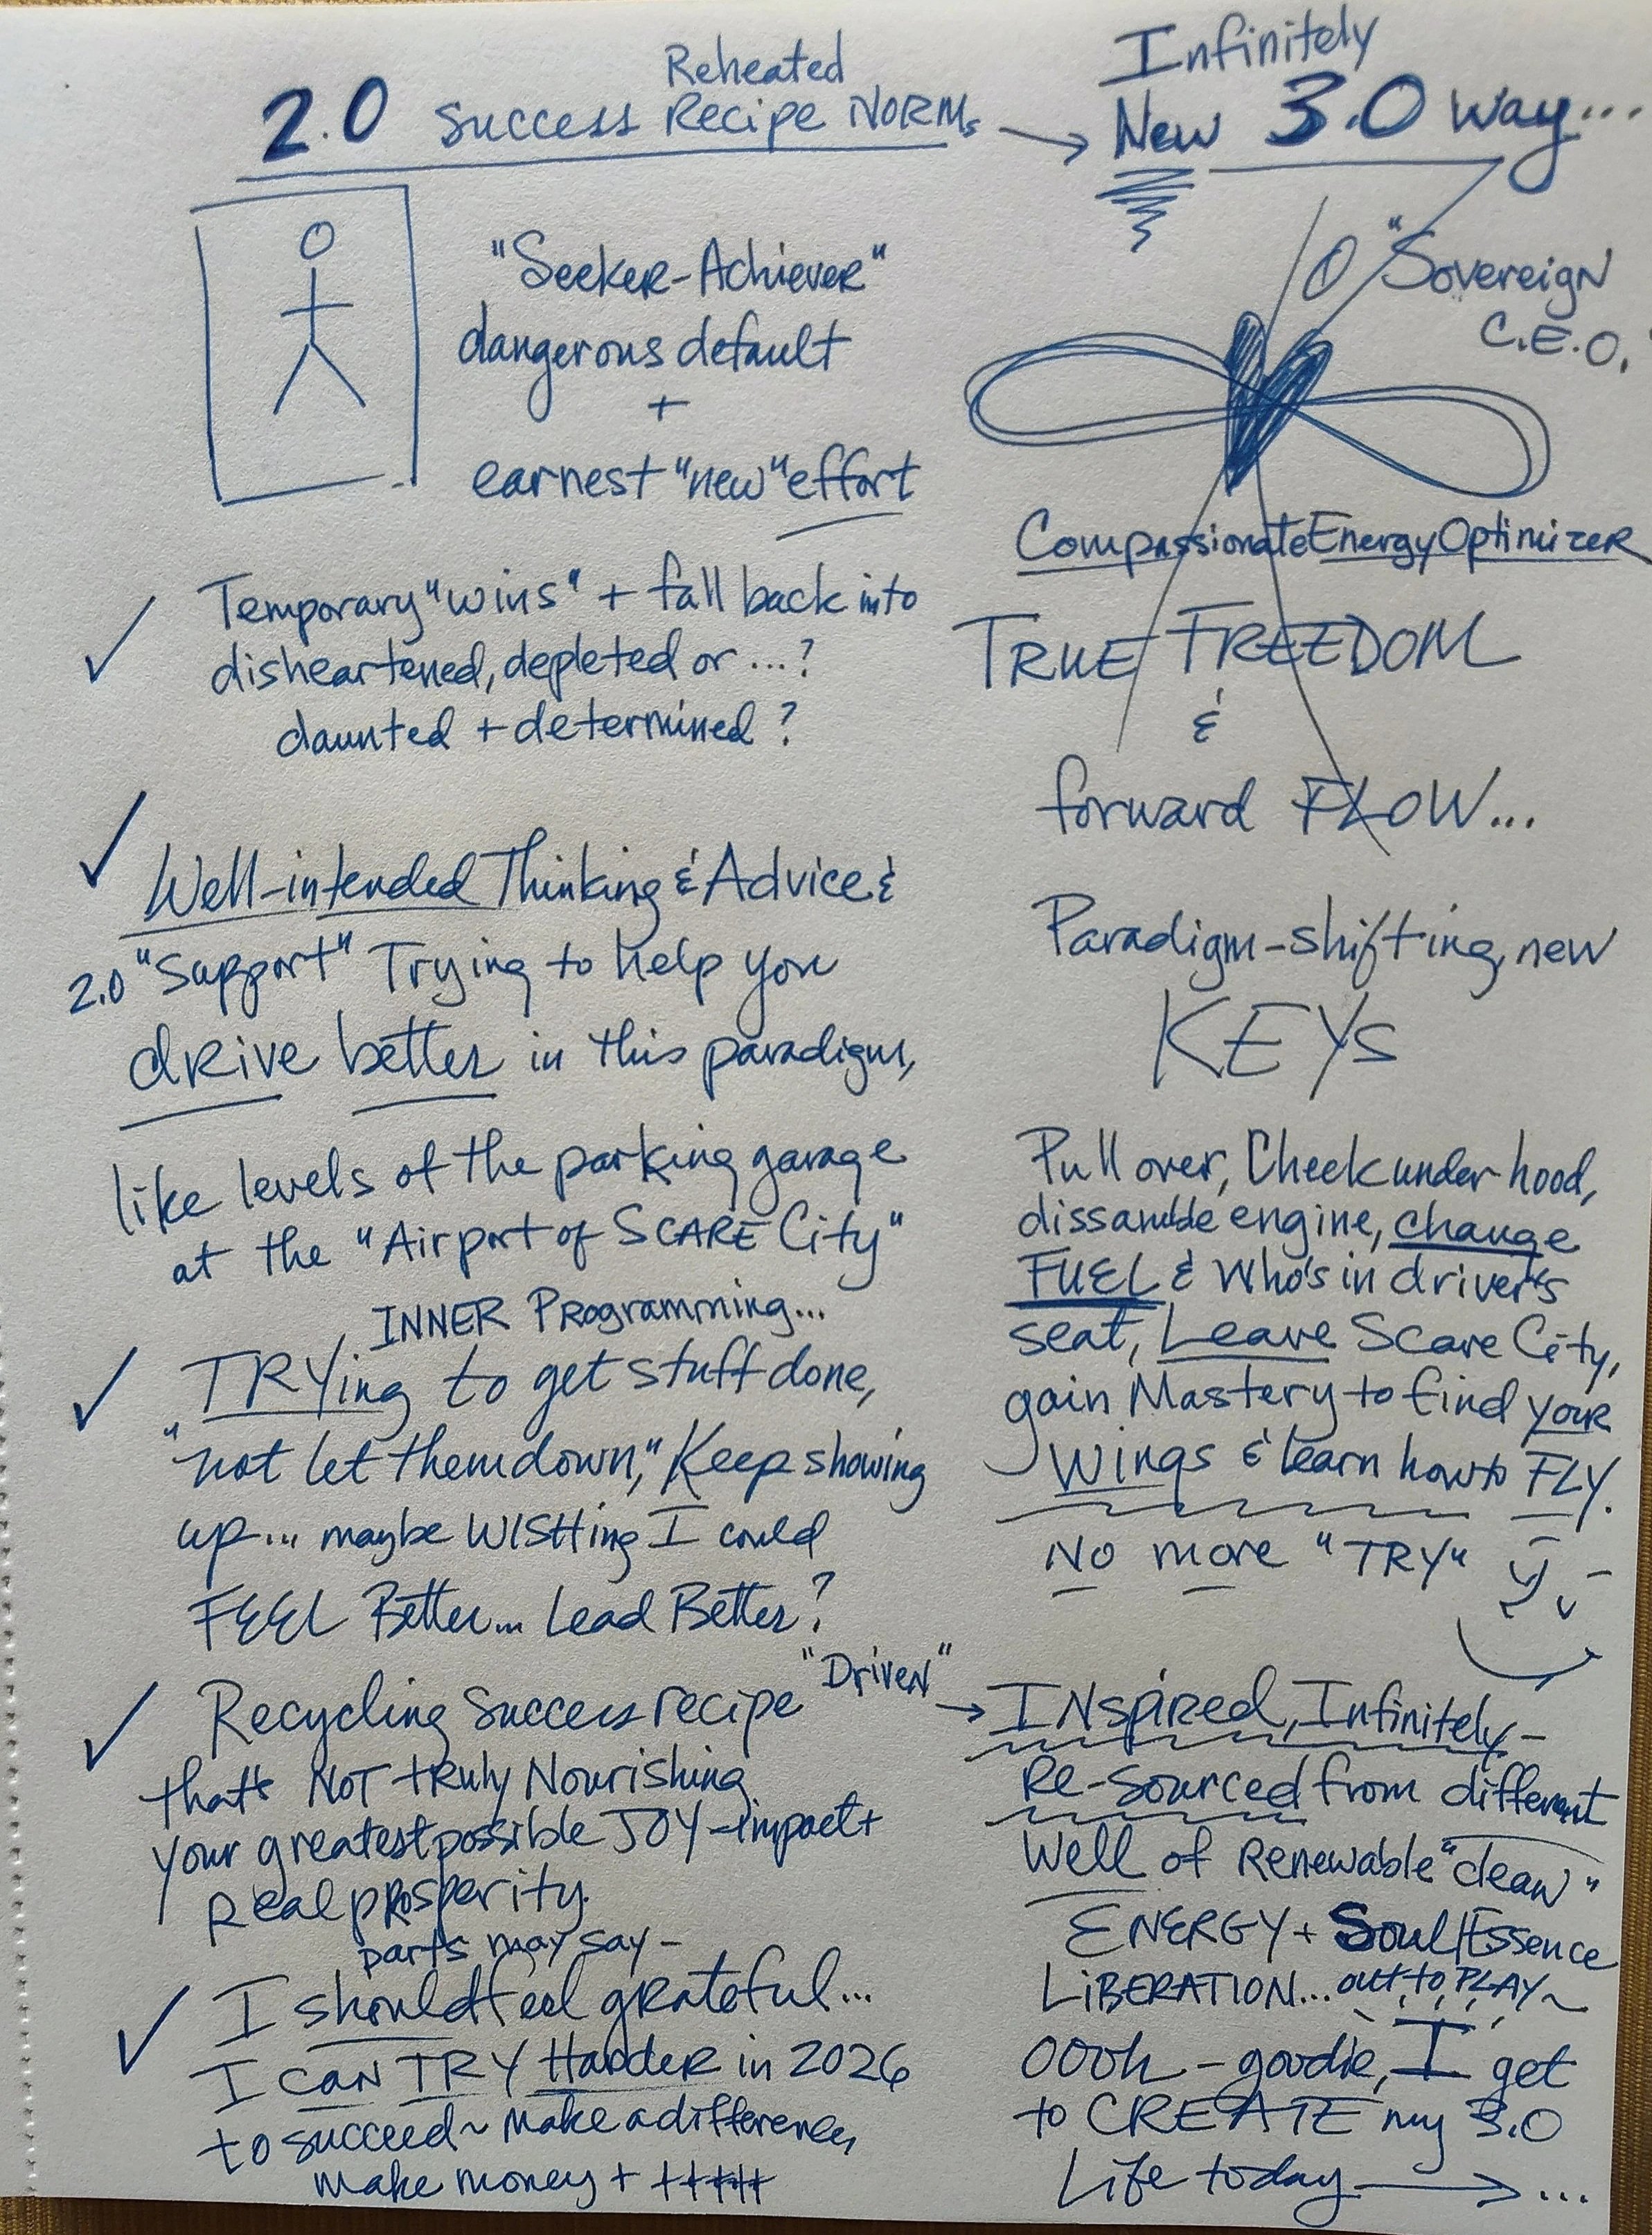 2.0 Success Recipe NORMs
Reheated
"Seeker-Achiever"
dangerous default
+
earnest "new" effort
Temporary "wins" + fall back into
disheartened, depleted or ...?
daunted + determined?
Well-intended Thinking & Advice &
2.0 "Support" Trying to help you
drive better in this paradigm,
like levels of the parking garage
at the "Airport of SCARE City"
INNER Programming...
TRYing to get stuff done,
"not let them down," Keep showing
up... maybe WISHing I could
FEEL Better... Lead Better?
Recycling success recipe "Driven"
that's NOT truly Nourishing
your greatest possible JOY-impact +
Real prosperity.
parts may say -
I should feel grateful...
I CAN TRY Harder in 2026
to succeed ~ make a difference,
make money + +++++
Infinitely
New 3.0 way...
"Sovereign
C.E.O."
Compassionate Energy Optimizer
TRUE FREEDOM
&
forward FLOW...
Paradigm-shifting, new
KEYs
Pull over, Check under hood,
dissamble engine, change
FUEL & Who's in driver's
seat, Leave Scare City,
gain Mastery to find your
Wings & learn how to FLY.
No more "TRY"
INspired, Infinitely-
Re-Sourced from different
Well of Renewable "clean"
ENERGY + Soul/Essence
LiBERATION... out to PLAY~
OOOh - goodie, I get
to CREATE my 3.0
Life today → ...